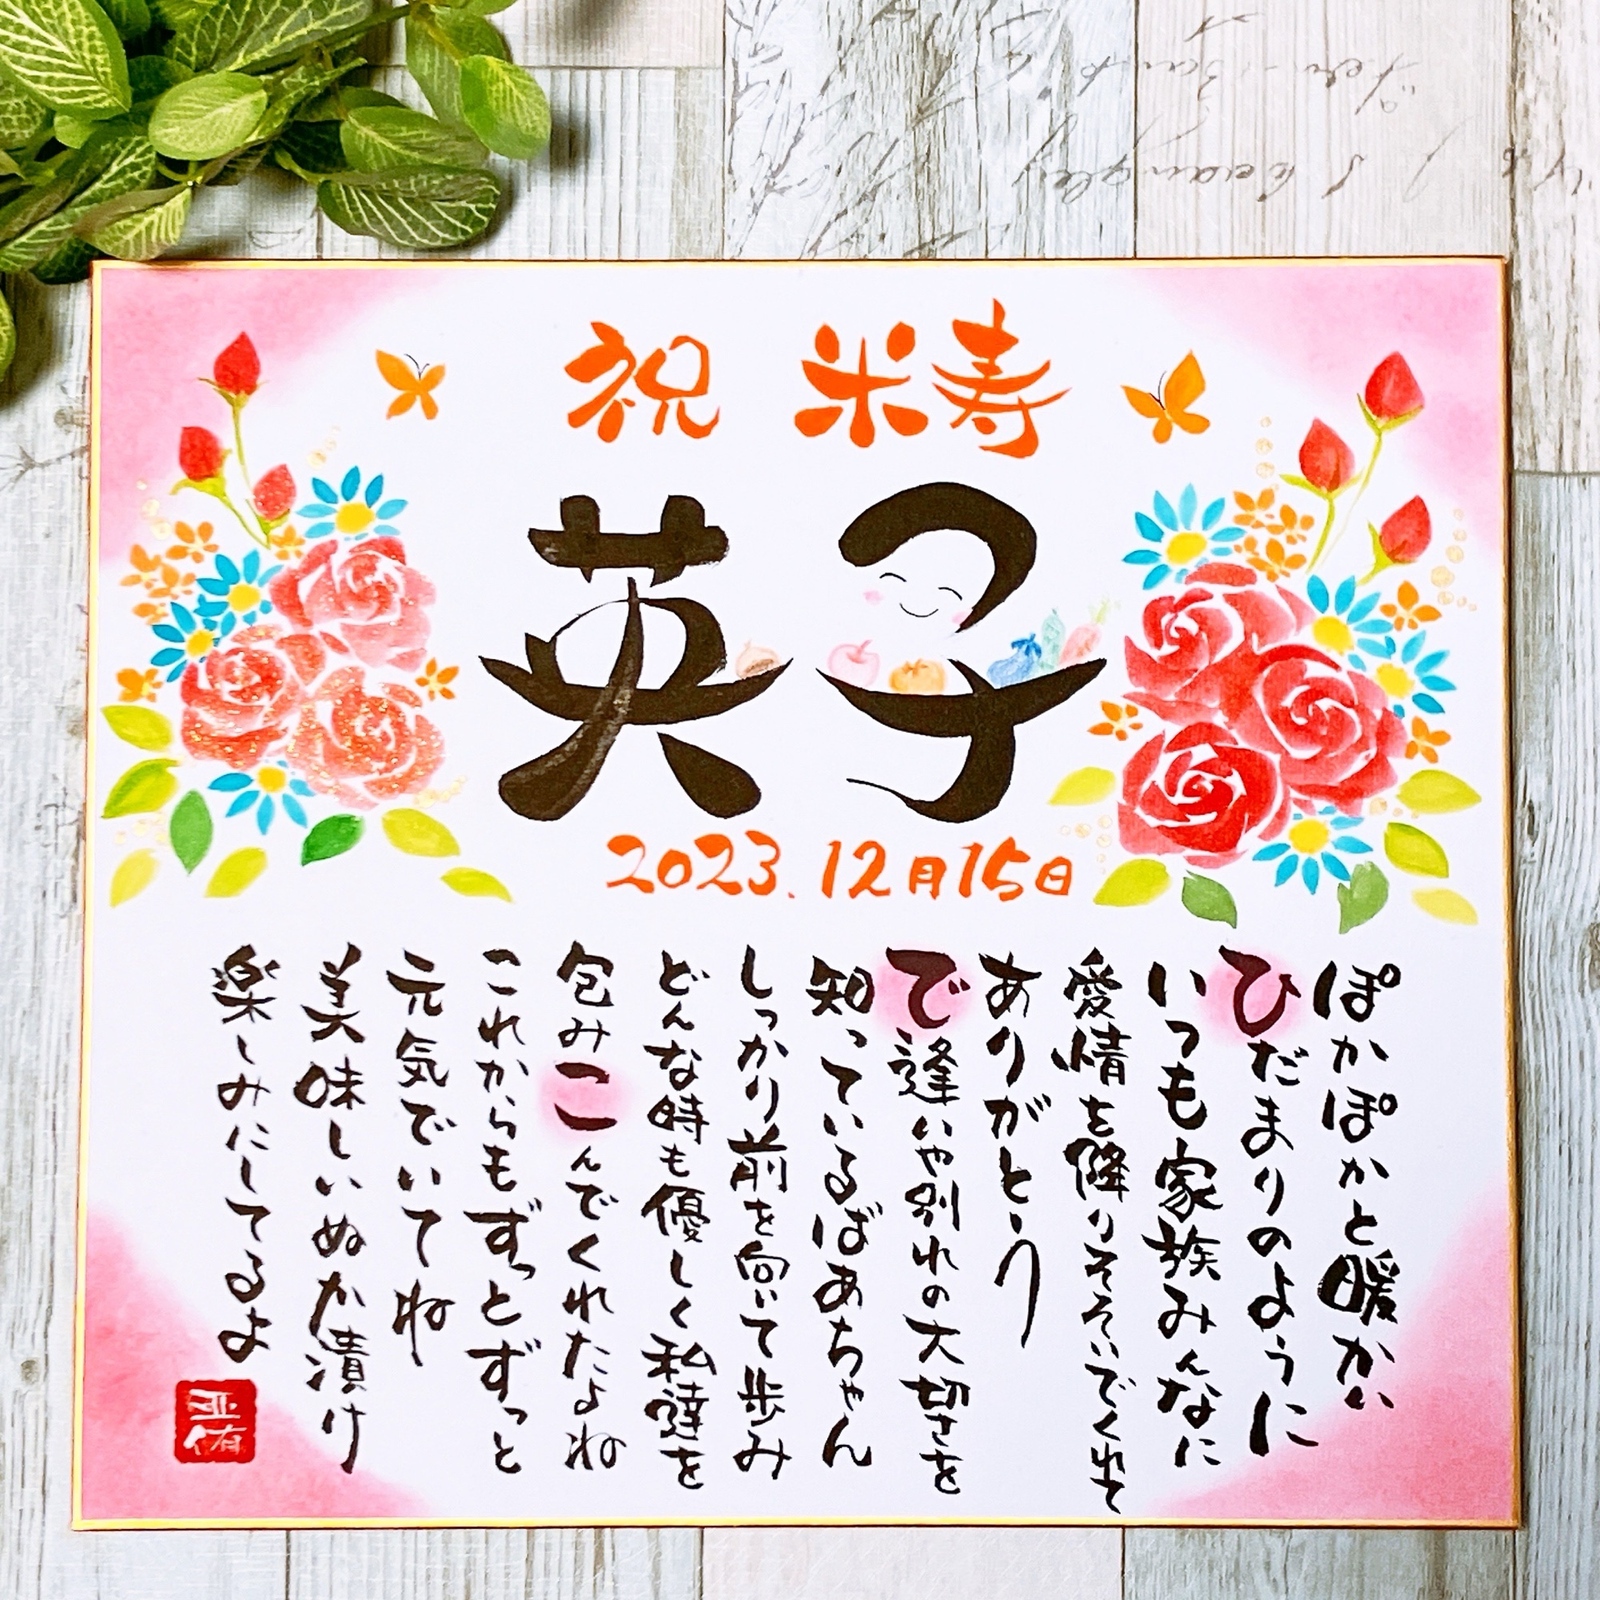 祝 米寿
英子
2023.12月15日
ぽかぽかと暖かい
ひだまりのように
いつも家族みんなに
愛情を降りそそいでくれて
ありがとう
で逢いや別れの大切さを
知っているばあちゃん
しっかり前を向いて歩み
どんな時も優しく私達を
包みこんでくれたよね
これからもずっとずっと
元気でいてね
美味しいぬか漬け
楽しみにしてるよ
亜侑